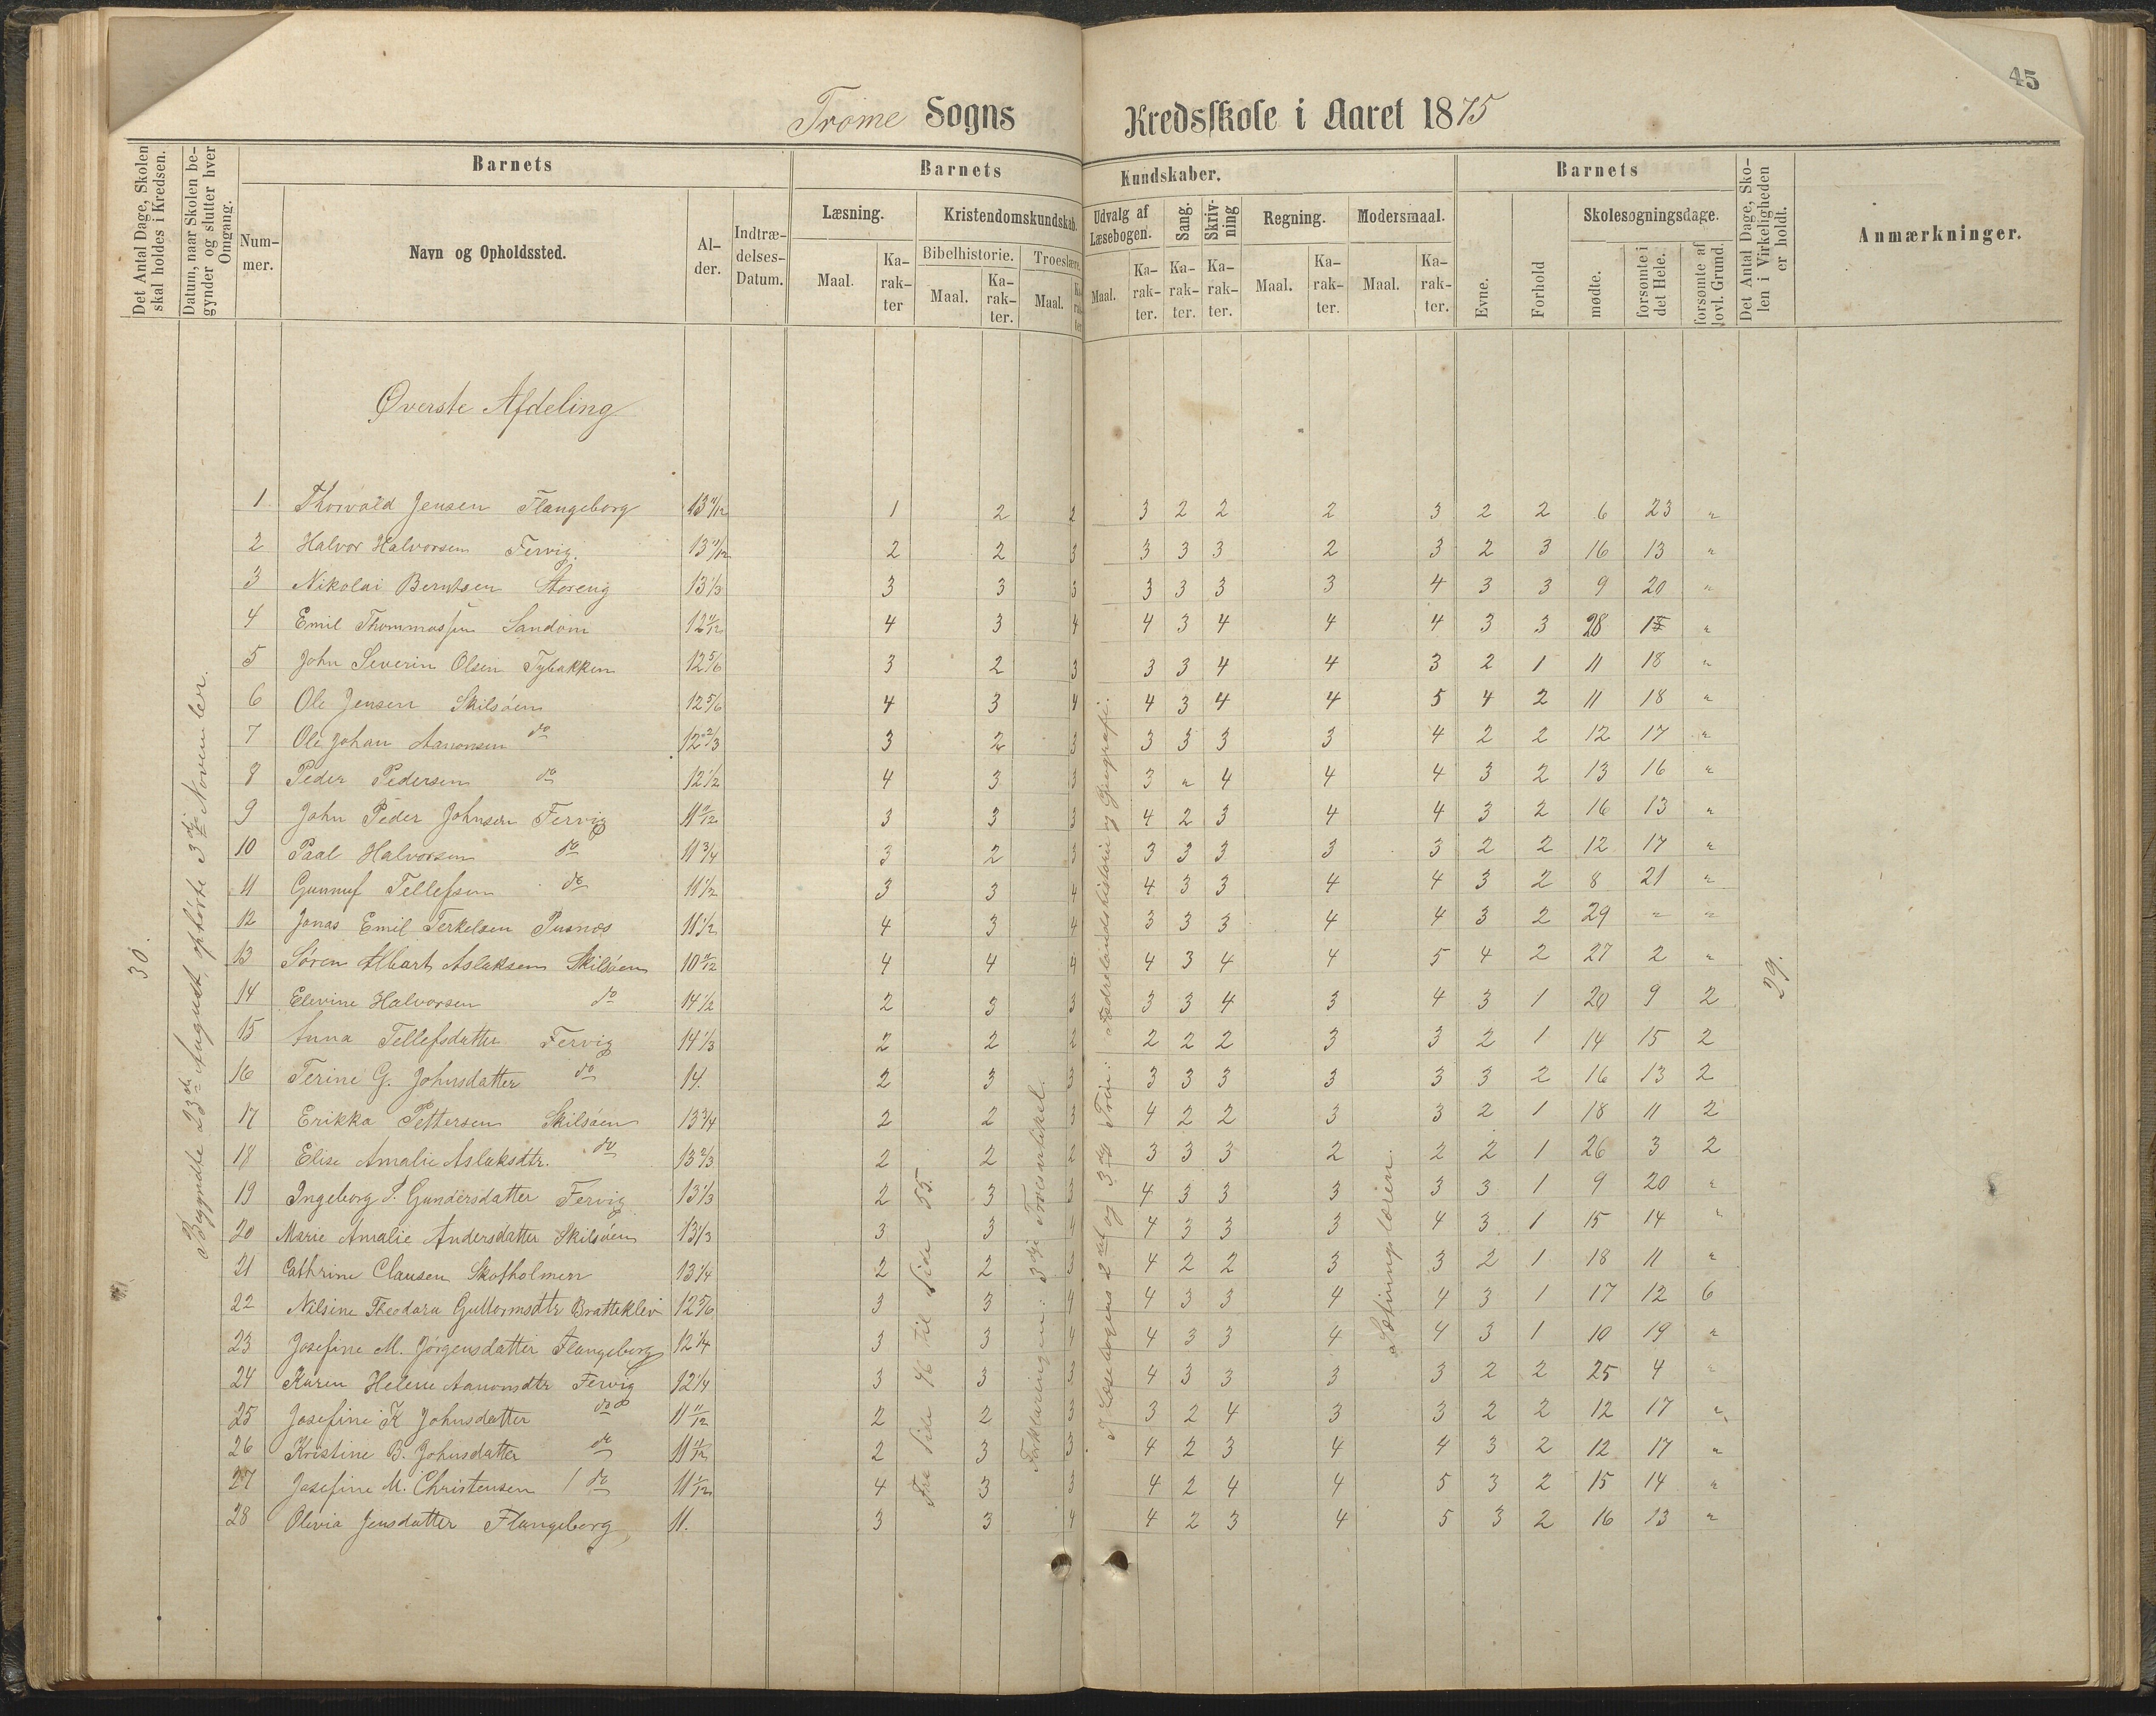 45
Trømø Sogns Kredsskole i Aaret 1875
Det Antal Dage, Skolen skal holdes i Kredsen.
Datum, naar Skolen begynder og slutter hver Omgang.
Barnets
Num-mer.
Navn og Opholdssted.
Al-der.
Indtræ-delses-Datum.
Barnets Kundskaber.
Læsning.
Maal.
Ka-rak-ter
Kristendomskundskab.
Bibelhistorie.
Maal.
Ka-rak-ter.
Troeslære.
Maal.
Udvalg af Læsebogen.
Maal.
Ka-rak-ter.
Sang.
Ka-rak-ter.
Skriv-ning
Ka-rak-ter.
Regning.
Maal.
Ka-rak-ter.
Modersmaal.
Maal.
Ka-rak-ter.
Barnets
Evne.
Forhold
Skolesøgningsdage.
mødte.
forsømte i det Hele.
forsømte af lovl. Grund.
Det Antal Dage, Sko-len i Virkeligheden er holdt.
Anmærkninger.
30.
Begyndte 23de August, ophørte 3die November.
Øverste Afdeling
1 Thorvald Jensen Flangeborg 13 11/12 1 2 2 3 2 2 2 3 2 2 6 23 "
2 Halvor Halvorsen Fervig. 13 11/12 2 2 3 3 3 3 2 3 2 3 16 13 "
3 Nikolai Berntsen Storeng 13 1/3 3 3 3 3 3 3 3 4 3 3 9 20 "
4 Emil Thommassen Sandom 12 11/12 4 3 4 4 3 4 4 4 3 3 28 1 "
5 John Severin Olsen Tybakken 12 5/6 3 2 3 3 3 4 4 3 2 1 11 18 "
6 Ole Jensen Skilsøen 12 5/6 4 3 4 4 3 4 4 5 4 2 11 18 "
7 Ole Johan Aanonsen do 12 2/3 3 2 3 3 3 3 3 4 2 2 12 17 "
8 Peder Pedersen do 12 1/2 4 3 3 3 " 4 4 4 3 2 13 16 "
9 John Peder Johnsen Fervig 11 11/12 3 3 3 4 2 3 4 4 3 2 16 13 "
10 Paal Halvorsen do 11 3/4 3 2 3 3 3 3 3 3 2 2 12 17 "
11 Gunnuf Tellefsen do 11 1/2 3 3 4 4 3 3 4 4 3 2 8 21 "
12 Jonas Emil Terkelsen Pusnes 11 1/2 4 3 4 3 3 3 4 4 3 2 29 " "
13 Søren Albart Aslaksen Skilsøen 10 11/12 4 4 4 4 3 4 4 5 4 2 27 2 "
14 Elevine Halvorsen do 14 1/2 2 3 3 3 3 4 3 4 3 1 20 9 2
15 Anna Tellefsdatter Fervig 14 1/3 2 2 2 2 2 2 3 3 2 1 14 15 2
16 Terine G. Johnsdatter do 14. 2 3 3 3 3 3 3 3 3 2 16 13 2
17 Erikka Pettersen Skilsøen 13 3/4 2 2 3 4 2 2 3 3 2 1 18 11 2
18 Elise Amalie Aslaksdtr. do 13 2/3 2 2 2 3 3 3 2 2 2 1 26 3 2
19 Ingeborg S. Gundersdatter Fervig 13 1/3 2 3 3 4 3 3 3 3 3 1 9 20 "
20 Marie Amalie Andersdatter Skilsøen 13 1/3 3 3 4 4 3 3 3 4 3 1 15 14 "
21 Cathrine Clausen Skofholmen 13 1/4 2 2 3 4 2 2 3 3 2 1 18 11 "
22 Nilsine Theodora Guttormsdtr Bratteklev 12 5/6 3 3 4 4 3 3 4 4 3 1 17 12 6
23 Josefine M. Jørgensdatter Flangeborg 12 1/4 3 3 4 4 3 3 4 4 3 1 10 19 "
24 Karen Helene Aanonsdtr Fervig 12 1/4 3 3 3 4 3 3 3 3 2 2 25 4 "
25 Josefine K Johnsdatter do 11 11/12 2 2 3 3 2 4 3 3 2 2 12 17 "
26 Kristine B. Johnsdatter do 11 11/12 2 3 3 4 2 3 4 4 3 2 12 17 "
27 Josefine M. Christensen do 11 1/12 4 3 3 4 2 4 4 5 3 2 15 14 "
28 Olivia Jensdatter Flangeborg 11. 3 3 4 4 2 3 4 5 3 2 16 13 "
Fra Side 46 til Side 55.
Forklaringen: 3die Troesartikel.
I Læsebogens 2det og 3die Trin: Fædrelandshistorie og Geografi.
Sætningslæren.
29.